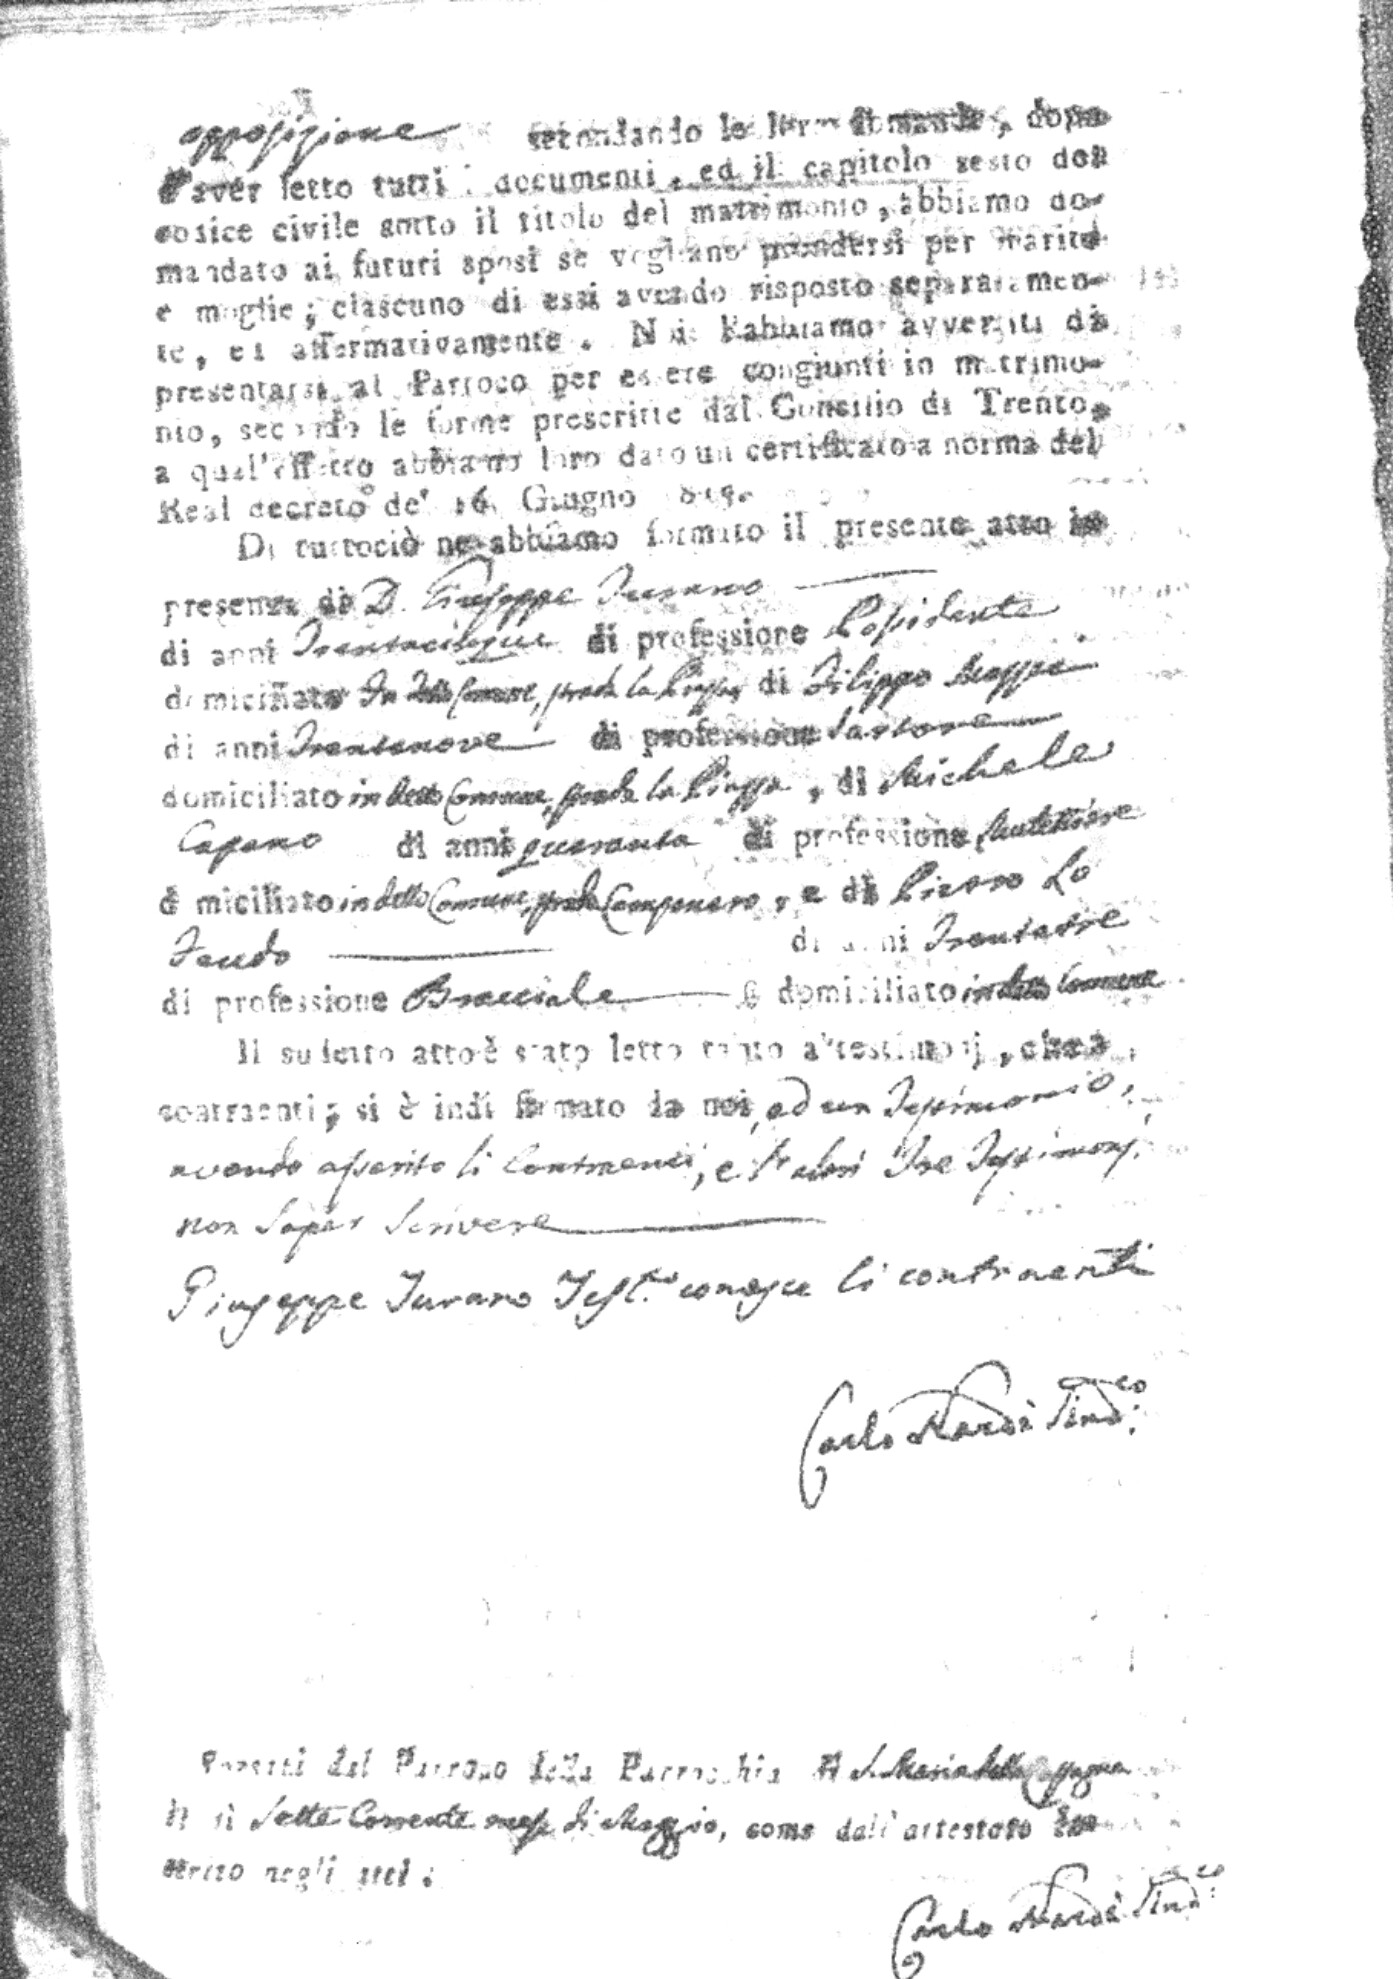 opposizione secondando le loro domande, dopo
aver letto tutti i documenti, ed il capitolo sesto del
codice civile sotto il titolo del matrimonio, abbiamo do-
mandato ai futuri sposi se vogliano prendersi per marito
e moglie; ciascuno di essi avendo risposto separatamen-
te, ed affermativamente. Noi l'abbiamo avvertiti di
presentarsi al Parroco per essere congiunti in matrimo-
nio, secondo le forme prescritte dal Consilio di Trento,
a qual'effetto abbiamo loro dato un certificato a norma del
Real decreto de' 16. Giugno
Di tuttociò ne abbiamo formato il presente atto in
presenza di D. Giuseppe Turano
di anni Trentacinque di professione Possidente
domiciliato In detto Comune, strada la Piazza, di Filippo
di anni Trentanove di professione Sartore
domiciliato in detto Comune, strada la Piazza, di Michele
Capano di anni quaranta di professione
domiciliato in detto Comune, strada Campanaro, e di Pietro Lo
Feudo di anni Trentatre
di professione Bracciale domiciliato in detto Comune
Il sudetto atto è stato letto tanto a' testimonj, che a'
contraenti; si è indi firmato da noi, ed un Testimonio,
avendo asserito li Contraenti, e l'altri Tre Testimonj,
non saper Scrivere
Giuseppe Turano Test.o conosce li contraenti
Carlo Nardi Sind.co
del Parroco della Parrocchia di S. Maria della
li dì Sette Corrente mese di Maggio, come dall'attestato in-
serito negli atti.
Carlo Nardi Sind.co